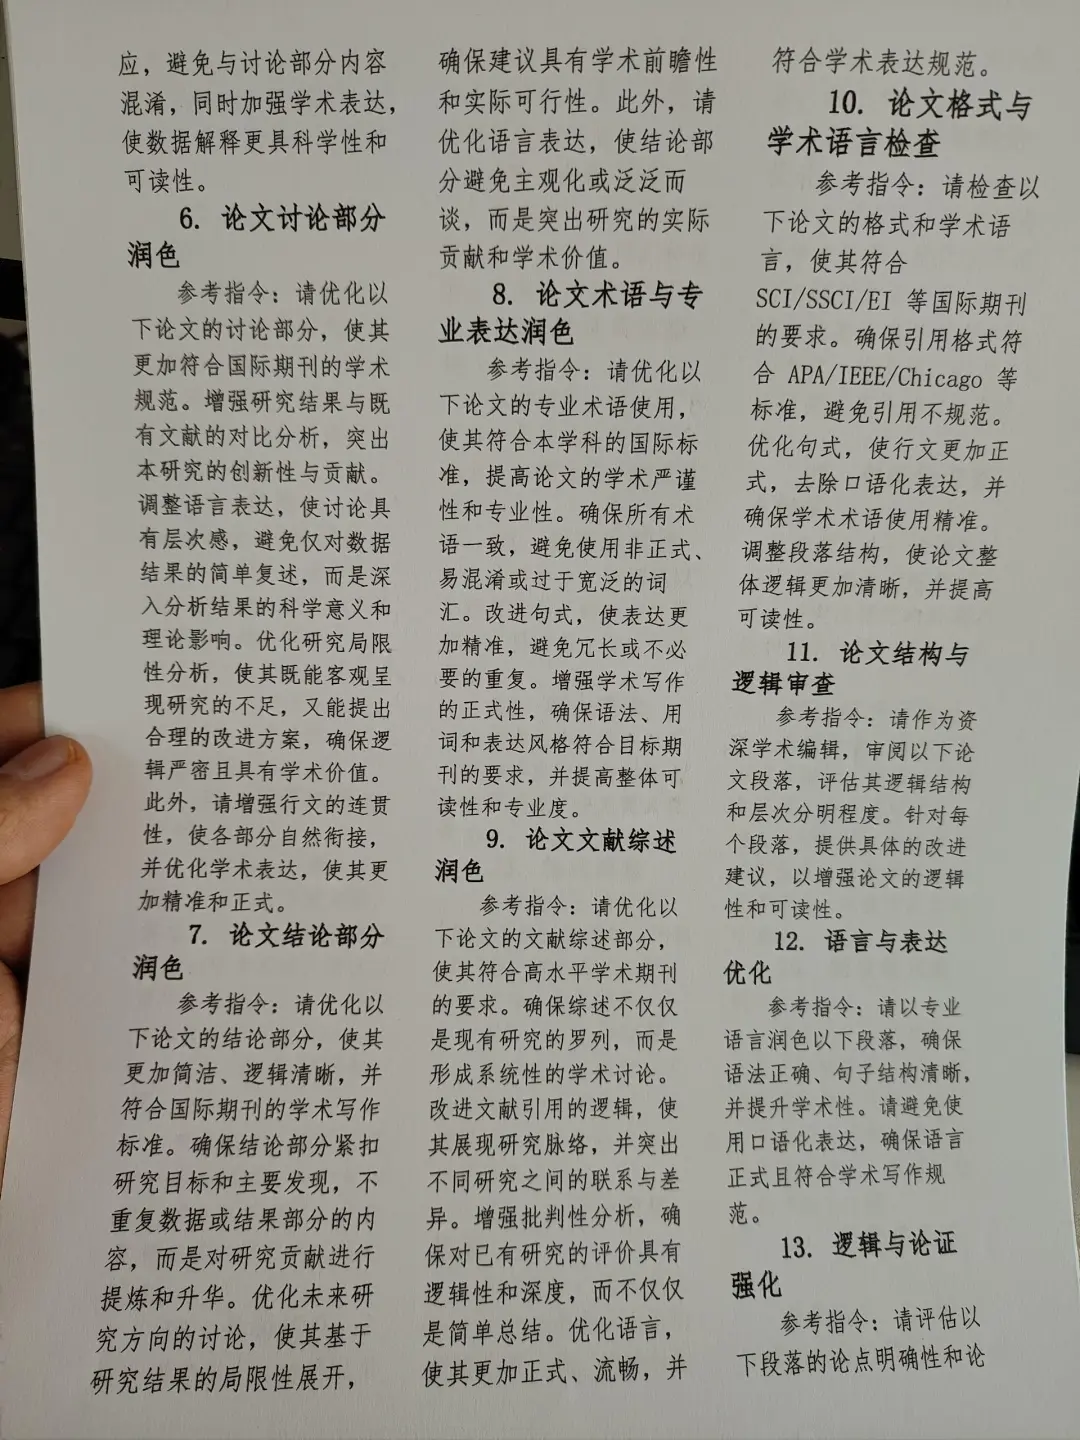 应，避免与讨论部分内容
混淆，同时加强学术表达，
使数据解释更具科学性和
可读性。
6. 论文讨论部分
润色
参考指令：请优化以
下论文的讨论部分，使其
更加符合国际期刊的学术
规范。增强研究结果与既
有文献的对比分析，突出
本研究的创新性与贡献。
调整语言表达，使讨论具
有层次感，避免仅对数据
结果的简单复述，而是深
入分析结果的科学意义和
理论影响。优化研究局限
性分析，使其既能客观呈
现研究的不足，又能提出
合理的改进方案，确保逻
辑严密且具有学术价值。
此外，请增强行文的连贯
性，使各部分自然衔接，
并优化学术表达，使其更
加精准和正式。
7. 论文结论部分
润色
参考指令：请优化以
下论文的结论部分，使其
更加简洁、逻辑清晰，并
符合国际期刊的学术写作
标准。确保结论部分紧扣
研究目标和主要发现，不
重复数据或结果部分的内
容，而是对研究贡献进行
提炼和升华。优化未来研
究方向的讨论，使其基于
研究结果的局限性展开，
确保建议具有学术前瞻性
和实际可行性。此外，请
优化语言表达，使结论部
分避免主观化或泛泛而
谈，而是突出研究的实际
贡献和学术价值。
8. 论文术语与专
业表达润色
参考指令：请优化以
下论文的专业术语使用，
使其符合本学科的国际标
准，提高论文的学术严谨
性和专业性。确保所有术
语一致，避免使用非正式、
易混淆或过于宽泛的词
汇。改进句式，使表达更
加精准，避免冗长或不必
要的重复。增强学术写作
的正式性，确保语法、用
词和表达风格符合目标期
刊的要求，并提高整体可
读性和专业度。
9. 论文文献综述
润色
参考指令：请优化以
下论文的文献综述部分，
使其符合高水平学术期刊
的要求。确保综述不仅仅
是现有研究的罗列，而是
形成系统性的学术讨论。
改进文献引用的逻辑，使
其展现研究脉络，并突出
不同研究之间的联系与差
异。增强批判性分析，确
保对已有研究的评价具有
逻辑性和深度，而不仅仅
是简单总结。优化语言，
使其更加正式、流畅，并
符合学术表达规范。
10. 论文格式与
学术语言检查
参考指令：请检查以
下论文的格式和学术语
言，使其符合
SCI/SSCI/EI 等国际期刊
的要求。确保引用格式符
合 APA/IEEE/Chicago 等
标准，避免引用不规范。
优化句式，使行文更加正
式，去除口语化表达，并
确保学术术语使用精准。
调整段落结构，使论文整
体逻辑更加清晰，并提高
可读性。
11. 论文结构与
逻辑审查
参考指令：请作为资
深学术编辑，审阅以下论
文段落，评估其逻辑结构
和层次分明程度。针对每
个段落，提供具体的改进
建议，以增强论文的逻辑
性和可读性。
12. 语言与表达
优化
参考指令：请以专业
语言润色以下段落，确保
语法正确、句子结构清晰，
并提升学术性。请避免使
用口语化表达，确保语言
正式且符合学术写作规
范。
13. 逻辑与论证
强化
参考指令：请评估以
下段落的论点明确性和论